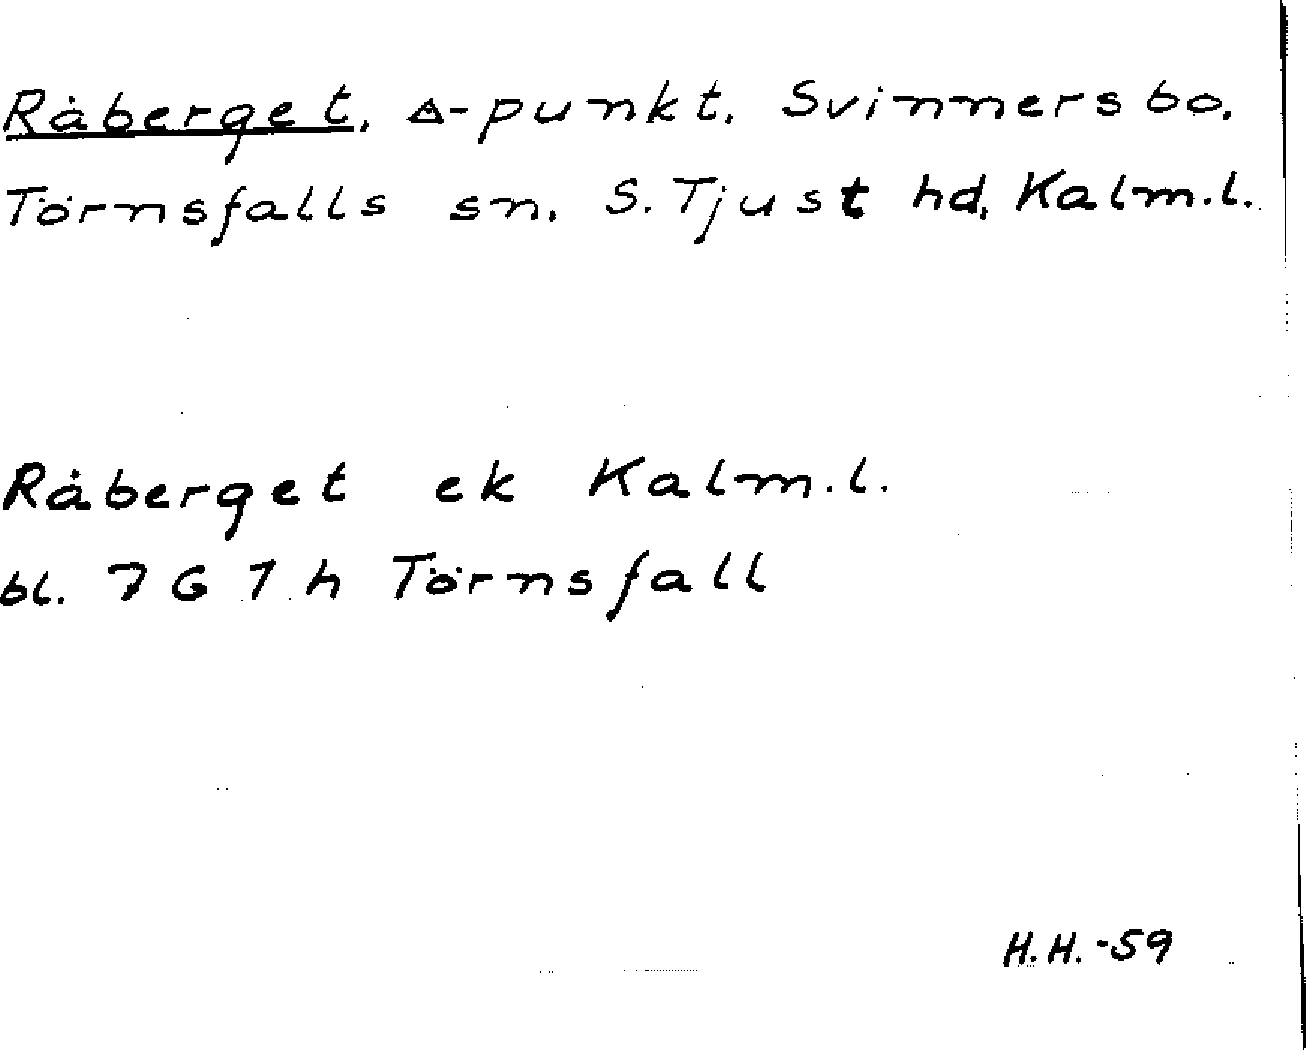 Råberget. △-punkt. Svinnersbo.
Törnsfalls sn. S. Tjust hd. Kalm.l.
Råberget ek Kalm.l.
bl. 7 G 1 h Törnsfall
H.H.-59